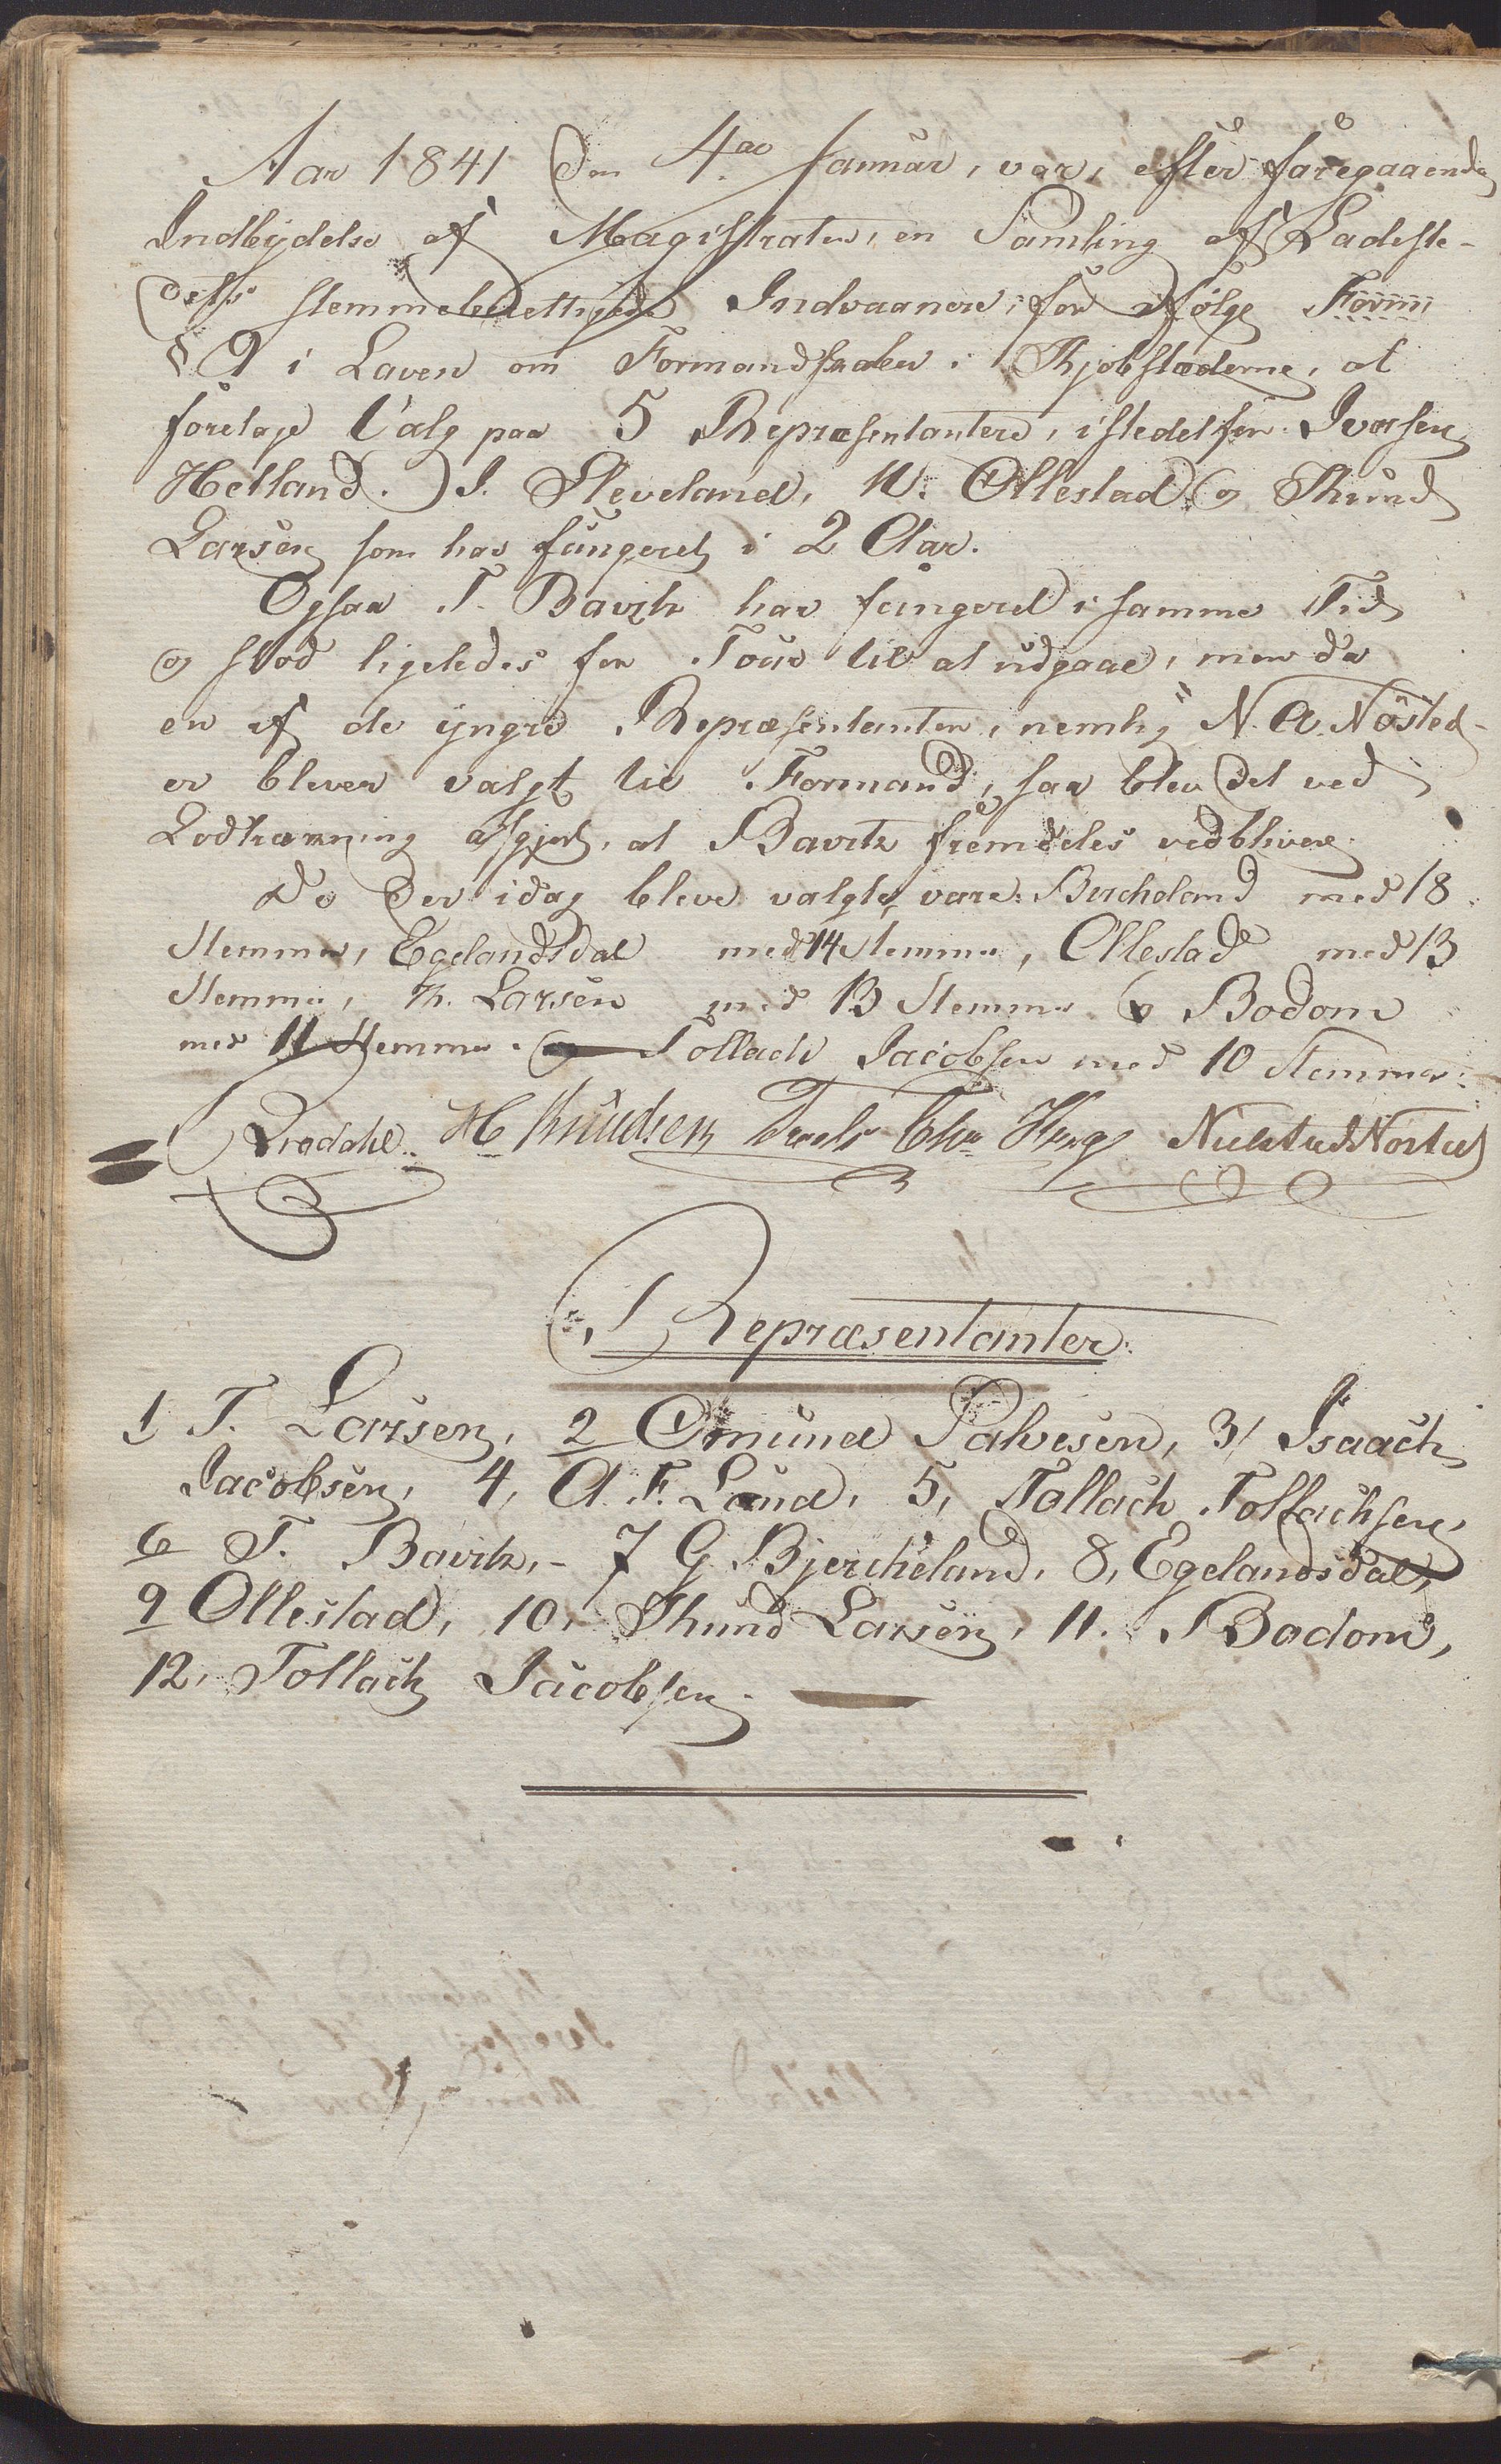 Aar 1841 den 4de Januar, var, efter foregaaende
Indbydelse af Magistraten, en Samling af Ladeste-
dets stemmeberettigede Indvaanere, for ifølge
§ 9 i Loven om Formandskaber i Kjøbstæderne, at
foretage Valg paa 5 Repræsentantere, istedetfor Iversen
Helland. J. Sleveland, W. Ollestad og Thund
Larsen som har fungeret i 2 Aar.
Ogsaa T. Bavitz har fungeret i samme Tid
og stod ligeledes for Tour til at udgaae, men da
en af de yngre Repræsentanter, nemlig N. A. Nøsted-
er bleven valgt til Formand, saa blev det ved
Lodtrækning afgjort, at Bavitz fremdeles vedbliver.
De der idag bleve valgte, vare: Bercheland med 18
Stemmer, Egelandsdal med 14 Stemmer, Ollestad med 13
Stemmer, Th. Larsen med 13 Stemmer og Bodom
med 11 Stemmer. og Tollach Jacobsen med 10 Stemmer.
H Knudsen
Repræsentanter.
1 T. Larsen, 2 Omund Salvesen, 3/ Isaach
Jacobsen, 4, A. F. Lund, 5, Tollach Tollachsen,
6 T. Bavitz, - 7 G. Bjercheland, 8, Egelandsdal,
9 Ollestad, 10, Thund Larsen, 11. Bodom,
12, Tollach Jacobsen.